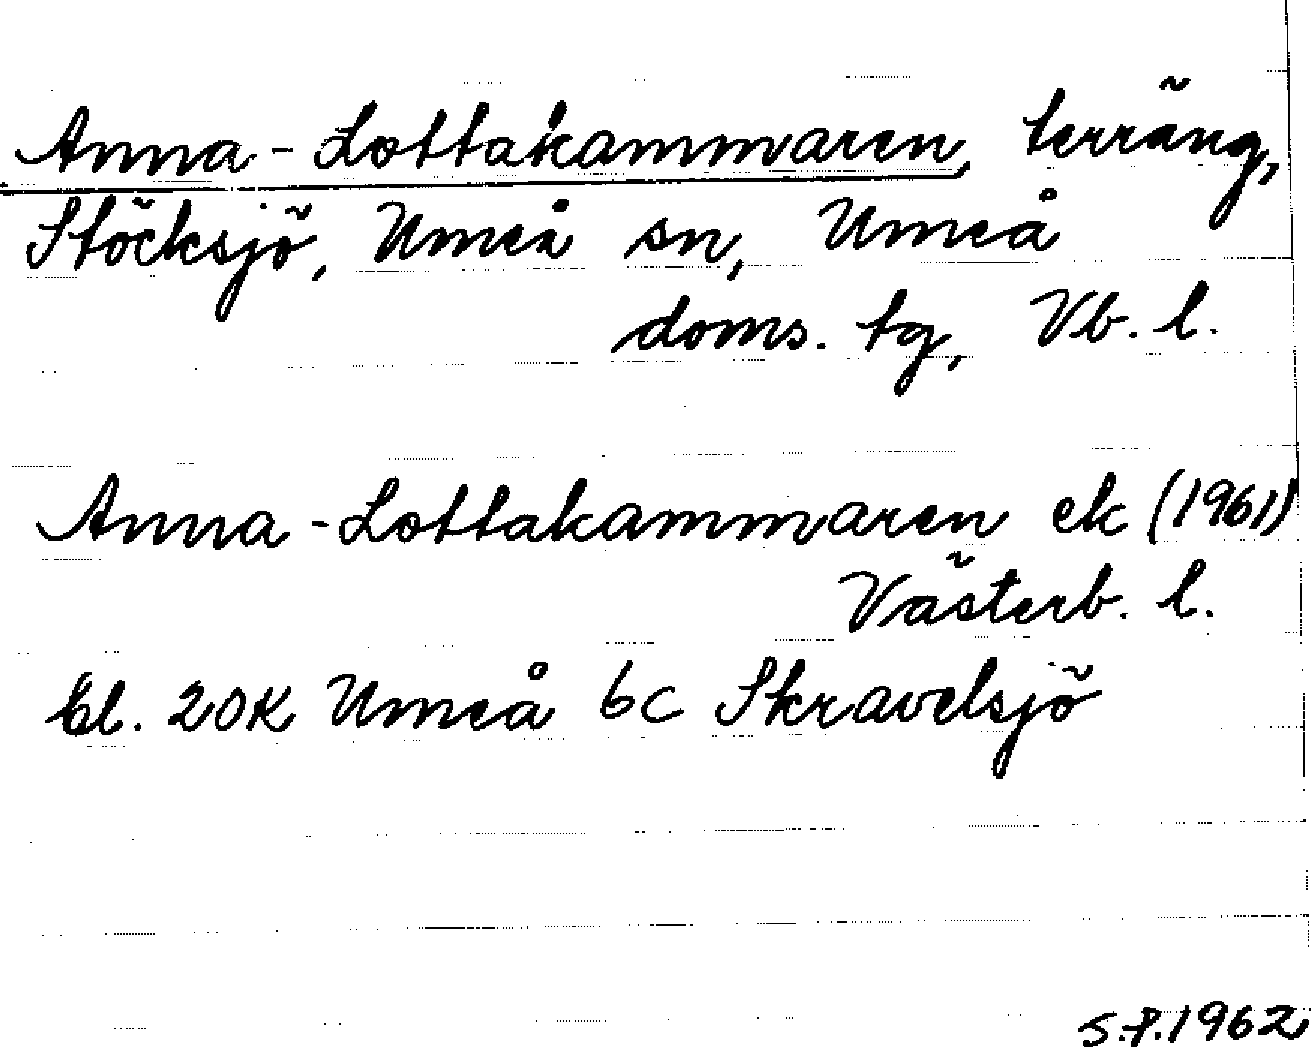 Anna-Lottakammaren, terräng,
Stöcksjö, Umeå sn, Umeå
doms. tg, Vb. l.
Anna-Lottakammaren ek (1961)
Västerb. l.
Bl. 20K Umeå 6c Skravelsjö
S.P. 1962